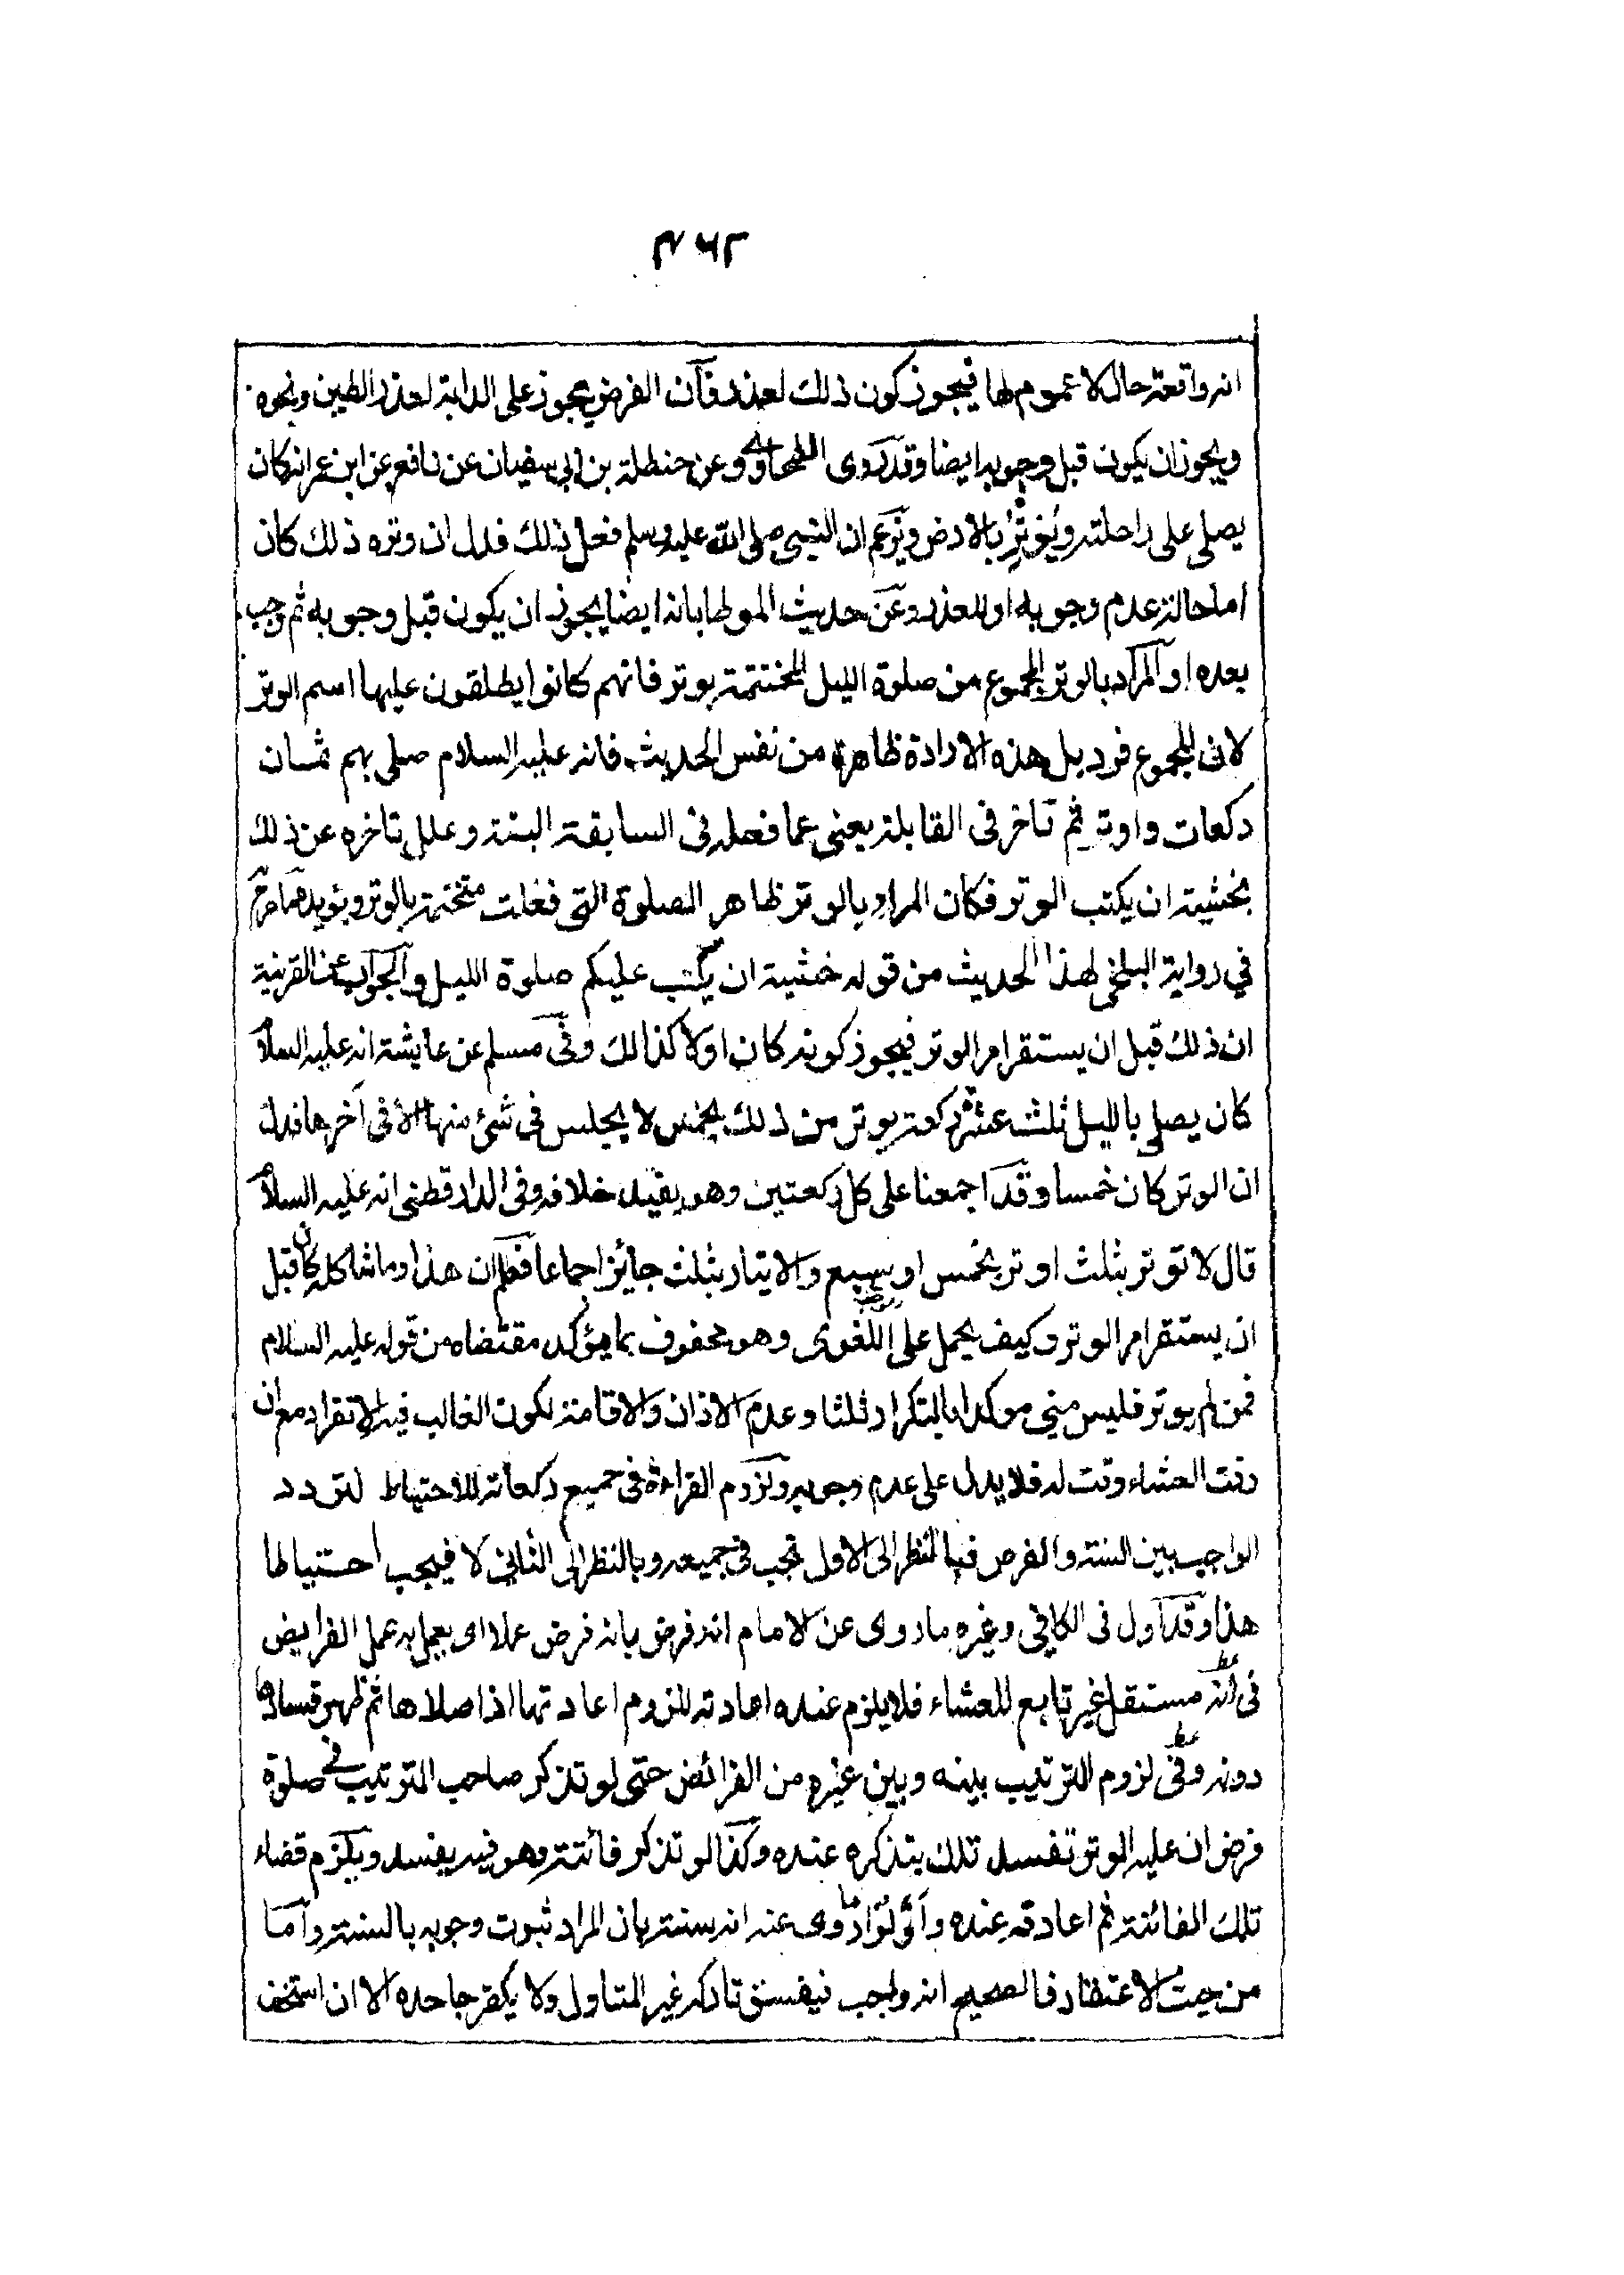 ٣٦٢
انه واقعة حال لا عموم لها فيجوز كون ذلك لعذر فان الفرض يجوز على الدابة لعذر الطين ونحوه
ويجوز ان يكون قبل وجوبه ايضا وقد روى الطحاوى عن حنظلة بن ابي سفيان عن نافع عن ابن عمر انه كان
يصلى على راحلته ويوتر بالارض ويزعم ان النبى صلى الله عليه وسلم فعل ذلك فدل ان وتره ذلك كان
اما حالة عدم وجوبه او للعذر وعن حديث الموطا بانه ايضا يجوز ان يكون قبل وجوبه ثم وجب
بعده او المراد بالوتر المجموع من صلوة الليل المختتمة بوتر فانهم كانوا يطلقون عليها اسم الوتر
لان المجموع فرد بل هذه الارادة ظاهرة من نفس الحديث فانه عليه السلام صلى بهم ثمان
ركعات واوتر ثم تاخر فى القابلة يعنى عما فعله فى السابقة البتة وعلل تاخره عن ذلك
بخشية ان يكتب الوتر فكان المراد بالوتر ظاهر الصلوة التى فعلت مختتمة بالوتر ويؤيده ما صرح
في رواية البلخى لهذا الحديث من قوله خشية ان يكتب عليكم صلوة الليل والجواب عن القرينة
ان ذلك قبل ان يستقر امر الوتر فيجوز كونه كان اولا كذالك وفى مسلم عن عايشة انه عليه السلام
كان يصلى بالليل ثلث عشر ركعة يوتر من ذلك بخمس لا يجلس فى شئ منها الا فى آخرها فدل
ان الوتر كان خمسا وقد اجمعنا على كل ركعتين وهو يفيد خلافه وفى الدارقطنى انه عليه السلام
قال لا توتر بثلث اوتر بخمس او سبع والايتار بثلث جائز اجماعا فعلم ان هذا وما شاكله كان قبل
ان يستقر امر الوتر وكيف يحمل على اللغوى وهو محفوف بما يؤكد مقتضاه من قوله عليه السلام
فمن لم يوتر فليس منى موكدا بالتكرار ثلثا وعدم الاذان والاقامة لكون الغالب فيه الانفراد مع ان
وقت العشاء وقت له فلا يدل على عدم وجوبه ولزوم القراءة فى جميع ركعاته للاحتياط لتردد
الواجب بين السنة والفرض فبالنظر الى الاول تجب فى جميعه وبالنظر الى الثانى لا فيجب احتياطا
هذا وقد اول فى الكافى وغيره ما روى عن الامام انه فرض بانه فرض عملا اى يعمل به عمل الفرايض
فى انه مستقل غير تابع للعشاء فلا يلزم عنده اعادته للزوم اعادتها اذا صلاها ثم ظهر فسادها
دونه وفى لزوم الترتيب بينه وبين غيره من الفرائض حتى لو تذكر صاحب الترتيب فى صلوة
فرض ان عليه الوتر تفسد تلك بتذكره عنده وكذا لو تذكر فائتة وهو فيه يفسد ويلزم قضاء
تلك الفائتة ثم اعادته عنده واولوا ما روى عنه انه سنة بان المراد ثبوت وجوبه بالسنة واما
من حيث الاعتقاد فالصحيح انه واجب فيفسق تاركه غير المتاول ولا يكفر جاحده الا ان استخف